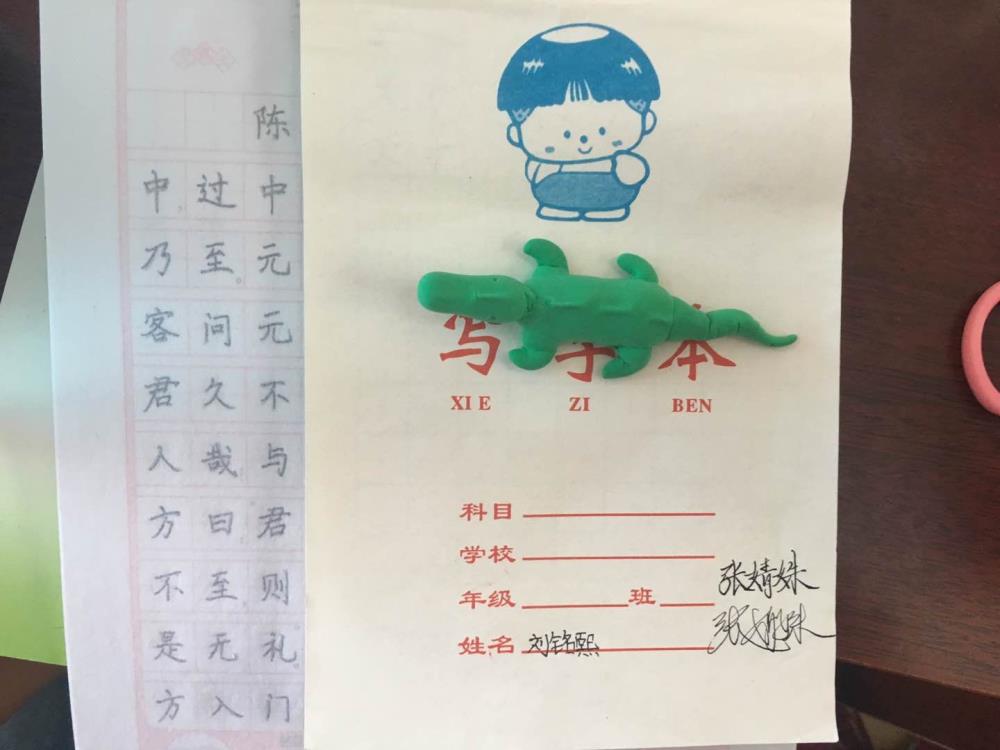 陈
中。过中
乃至。元
客问元
君久不
人哉与
方曰君
不至则
是无礼。
方入门
写字本
XIE ZI BEN
科目
学校
年级 班
姓名 刘铭熙
张婧姝